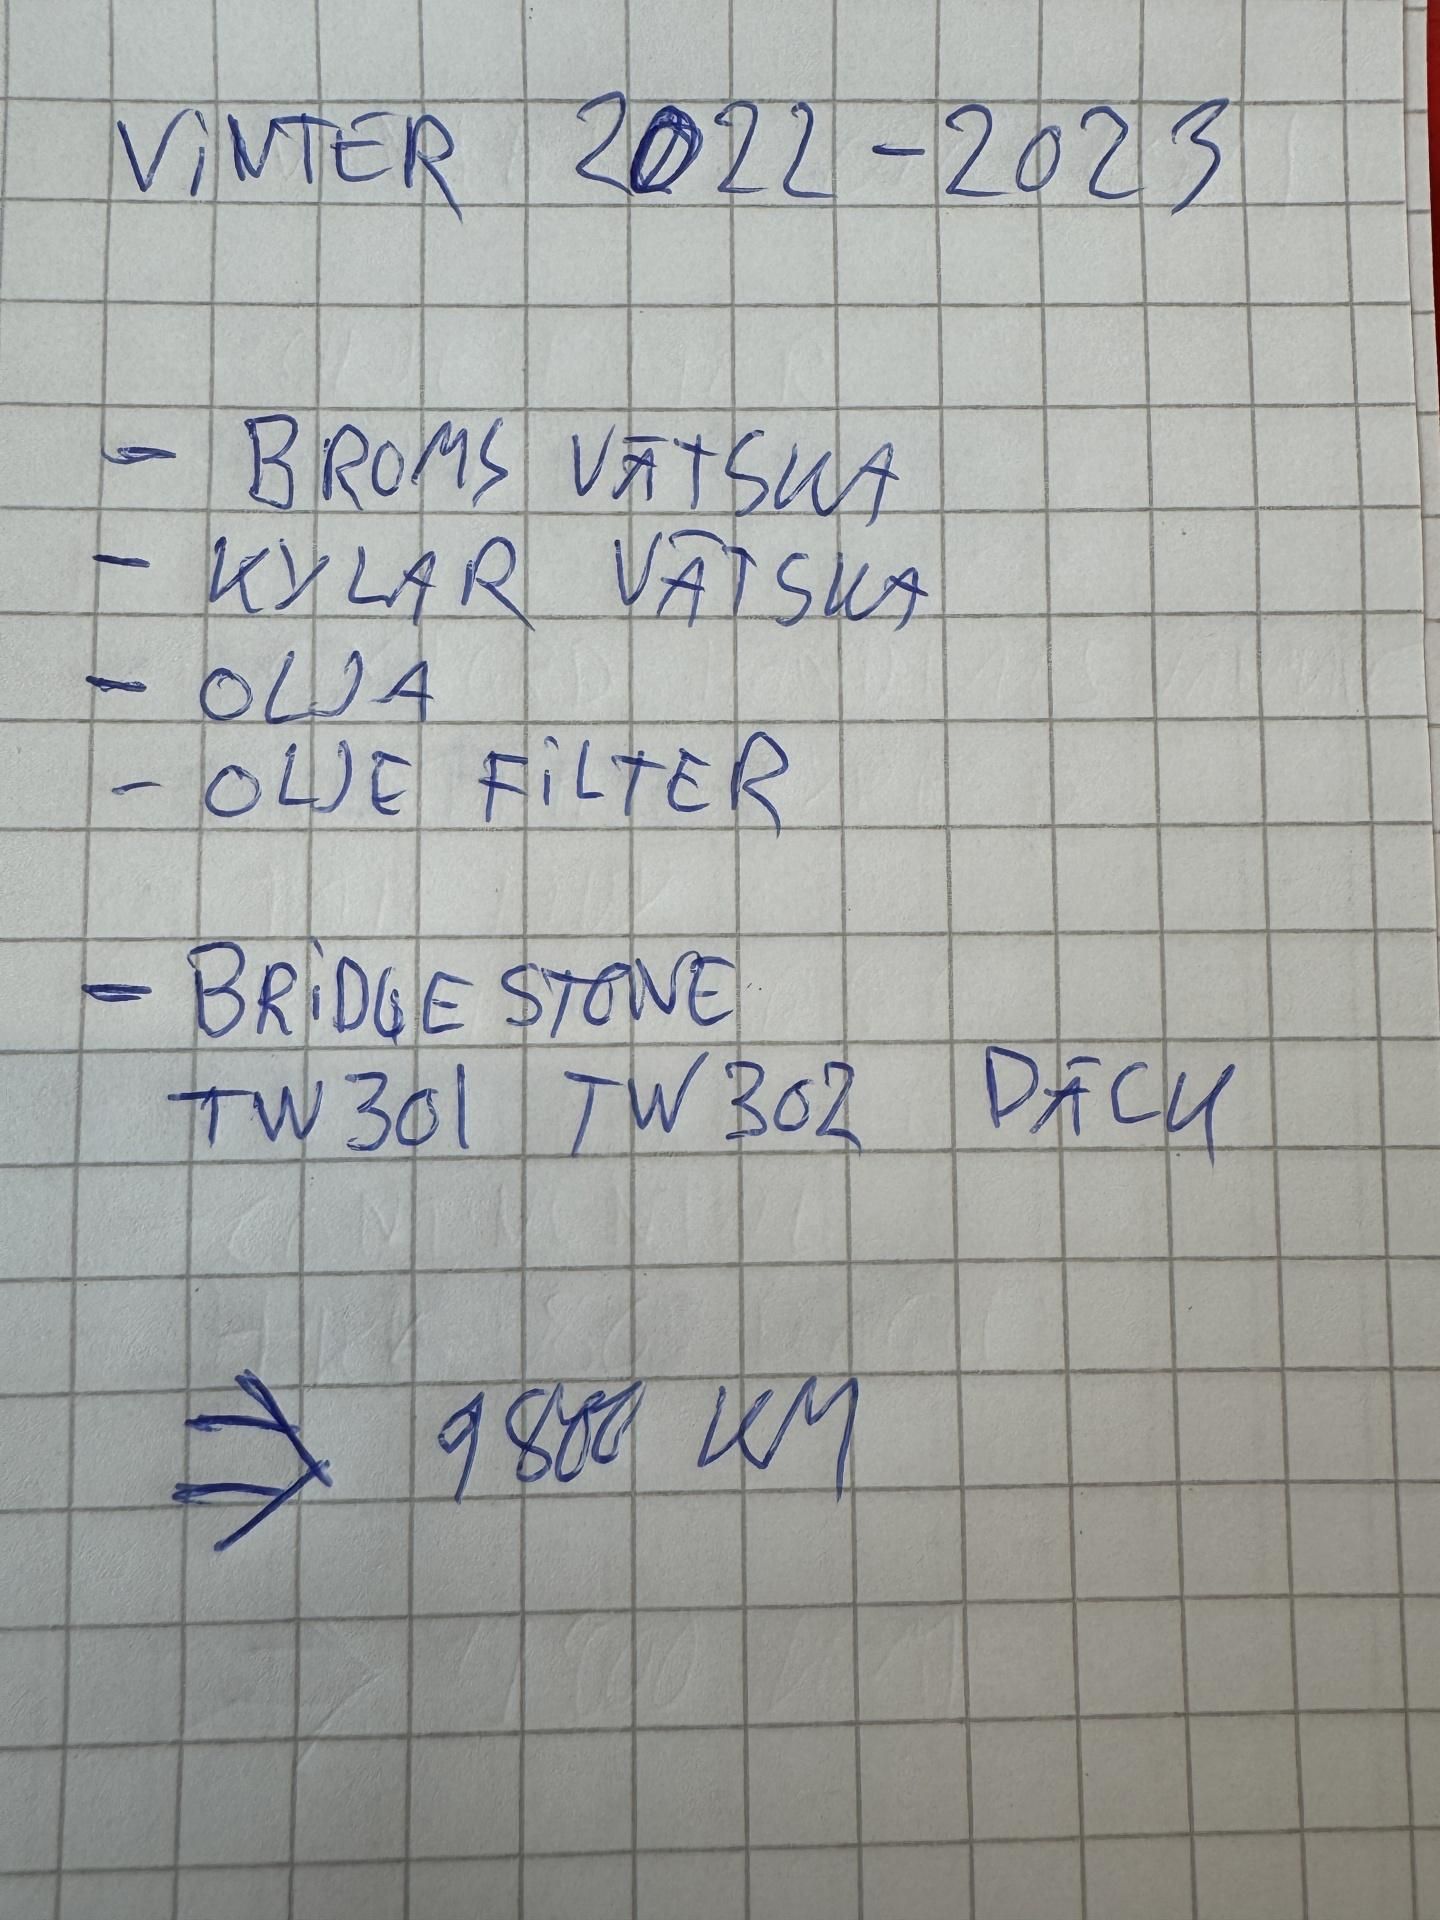 VINTER 2022-2023
- BROMS VÄTSKA
- KYLAR VÄTSKA
- OLJA
- OLJE FILTER
- BRIDGESTONE
TW301 TW302 DÄCK
⇒ 9800 KM